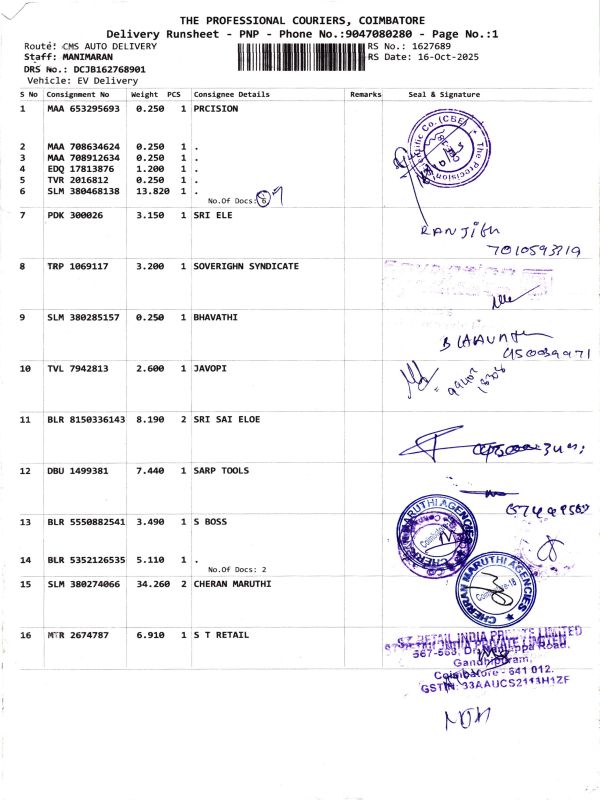 THE PROFESSIONAL COURIERS, COIMBATORE
Delivery Runsheet - PNP - Phone No.:9047080280 - Page No.:1
Route: CMS AUTO DELIVERY RS No.: 1627689
Staff: MANIMARAN RS Date: 16-Oct-2025
DRS No.: DCJB162768901
Vehicle: EV Delivery
S No Consignment No Weight PCS Consignee Details Remarks Seal & Signature
1 MAA 653295693 0.250 1 PRCISION
2 MAA 708634624 0.250 1 .
3 MAA 708912634 0.250 1 .
4 EDQ 17813876 1.200 1 .
5 TVR 2016812 0.250 1 .
6 SLM 380468138 13.820 1 .
No.Of Docs: 6
7 PDK 300026 3.150 1 SRI ELE
RANJITH
8 TRP 1069117 3.200 1 SOVERIGHN SYNDICATE
9 SLM 380285157 0.250 1 BHAVATHI
10 TVL 7942813 2.600 1 JAVOPI
11 BLR 8150336143 8.190 2 SRI SAI ELOE
12 DBU 1499381 7.440 1 SARP TOOLS
13 BLR 5550882541 3.490 1 S BOSS
CHERRAN MARUTHI AGENCIES
14 BLR 5352126535 5.110 1 .
No.Of Docs: 2
15 SLM 380274066 34.260 2 CHERAN MARUTHI
CHERRAN MARUTHI AGENCIES
Coimbatore-18
16 MTR 2674787 6.910 1 S T RETAIL
Gandhipuram,
Coimbatore - 641 012.
GSTIN: 33AAUCS2113H1ZF